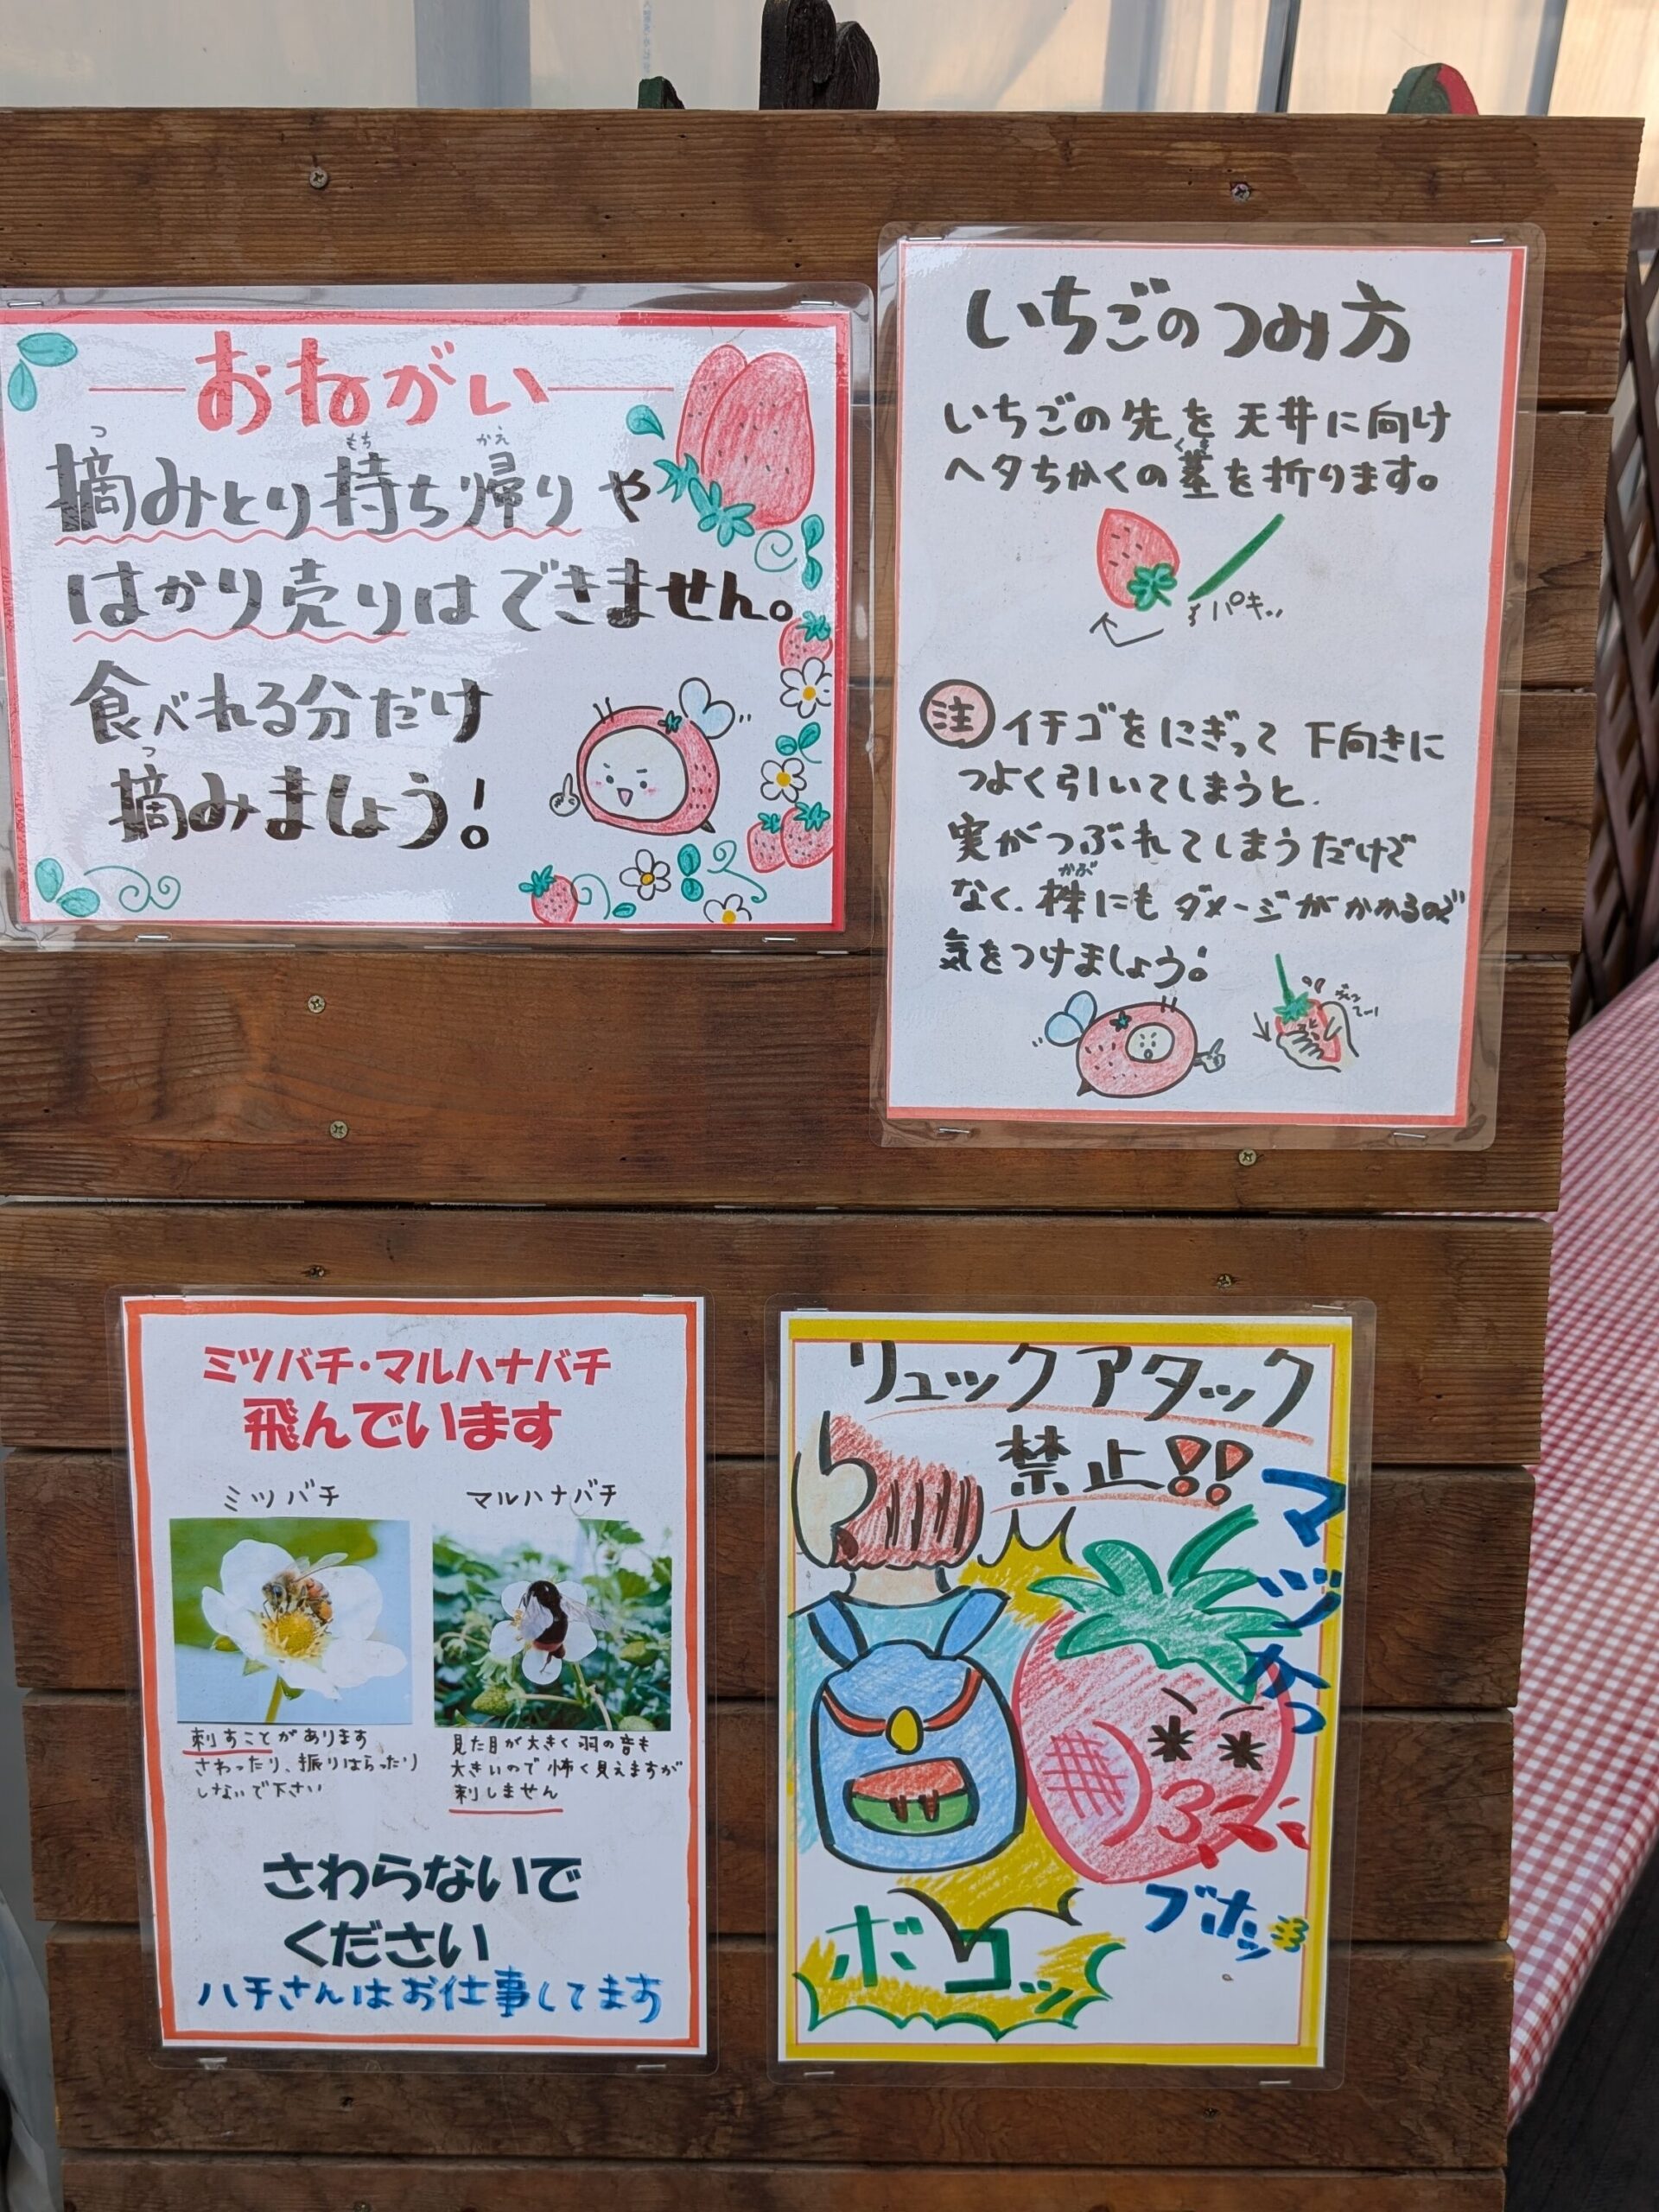 おねがい
摘みとり持ち帰りや
はかり売りはできません。
食べれる分だけ
摘みましょう!
いちごのつみ方
いちごの先を天井に向け
ヘタちかくの茎を折ります。
パキッ
注 イチゴをにぎって下向きに
つよく引いてしまうと、
実がつぶれてしまうだけで
なく、株にもダメージがかかるので
気をつけましょう!
ミツバチ・マルハナバチ
飛んでいます
ミツバチ
刺すことがあります
さわったり、振りはらったり
しないで下さい
マルハナバチ
見た目が大きく羽の音も
大きいので怖く見えますが
刺しません
さわらないで
ください
ハチさんはお仕事してます
リュックアタック
禁止!!
マヅカっ
ブホッ
ボコッ